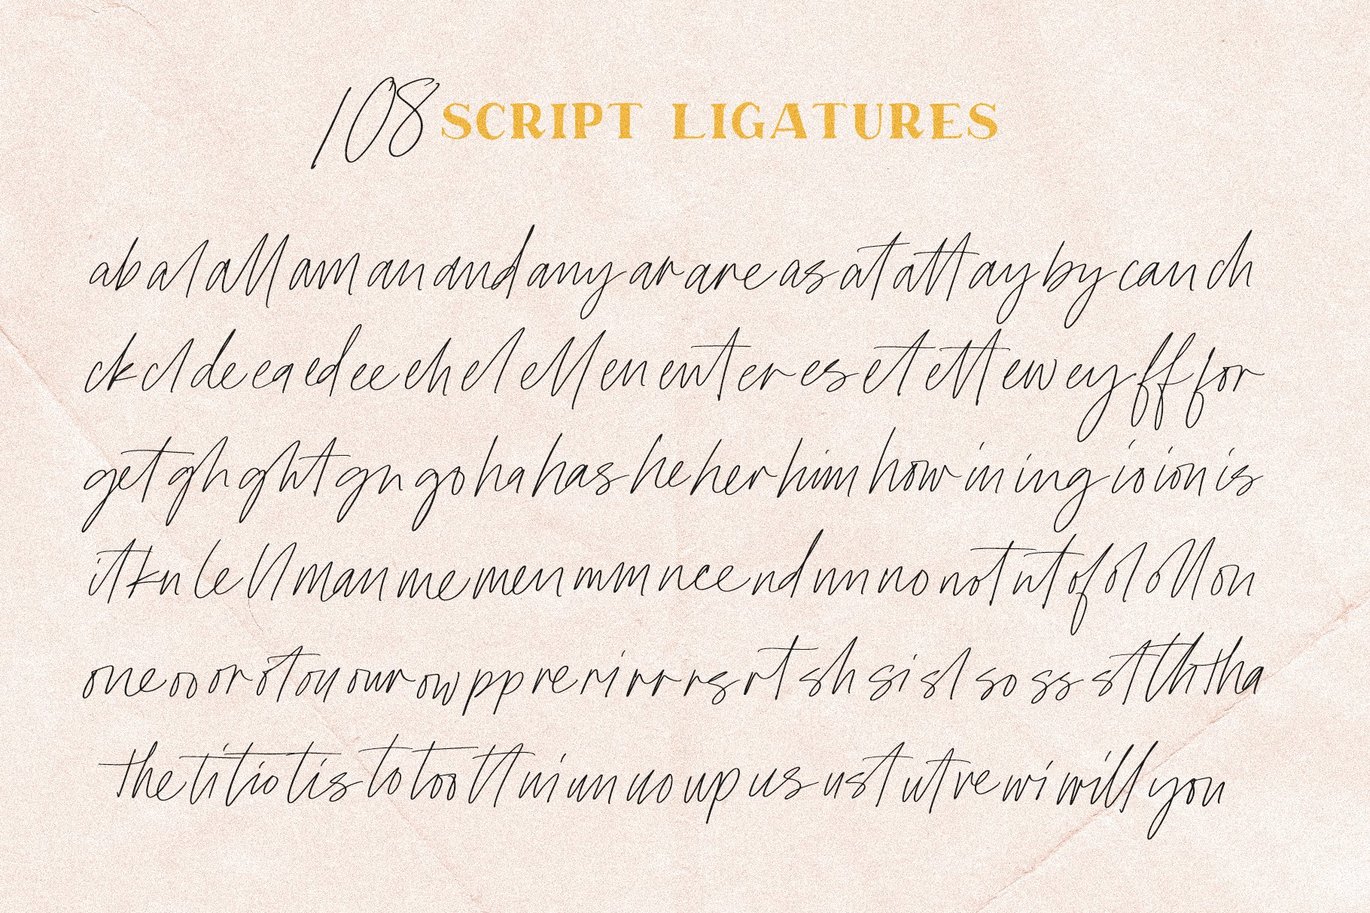 108 SCRIPT LIGATURES
ab al all am an and any ar are as at att ay by can ch
ck cl de ea ed ee eh el ell en ent er es et ett ew ey ff for
get gh ght gn go ha has he her him how in ing io ion is
it kn le ll man me men mm nce nd nn no not nt of ol oll on
one oo or ot ou our ow pp re ri rr rs rt sh si sl so ss st th tha
the ti tio tis to too tt ui un uo up us ust ut ve wi will you